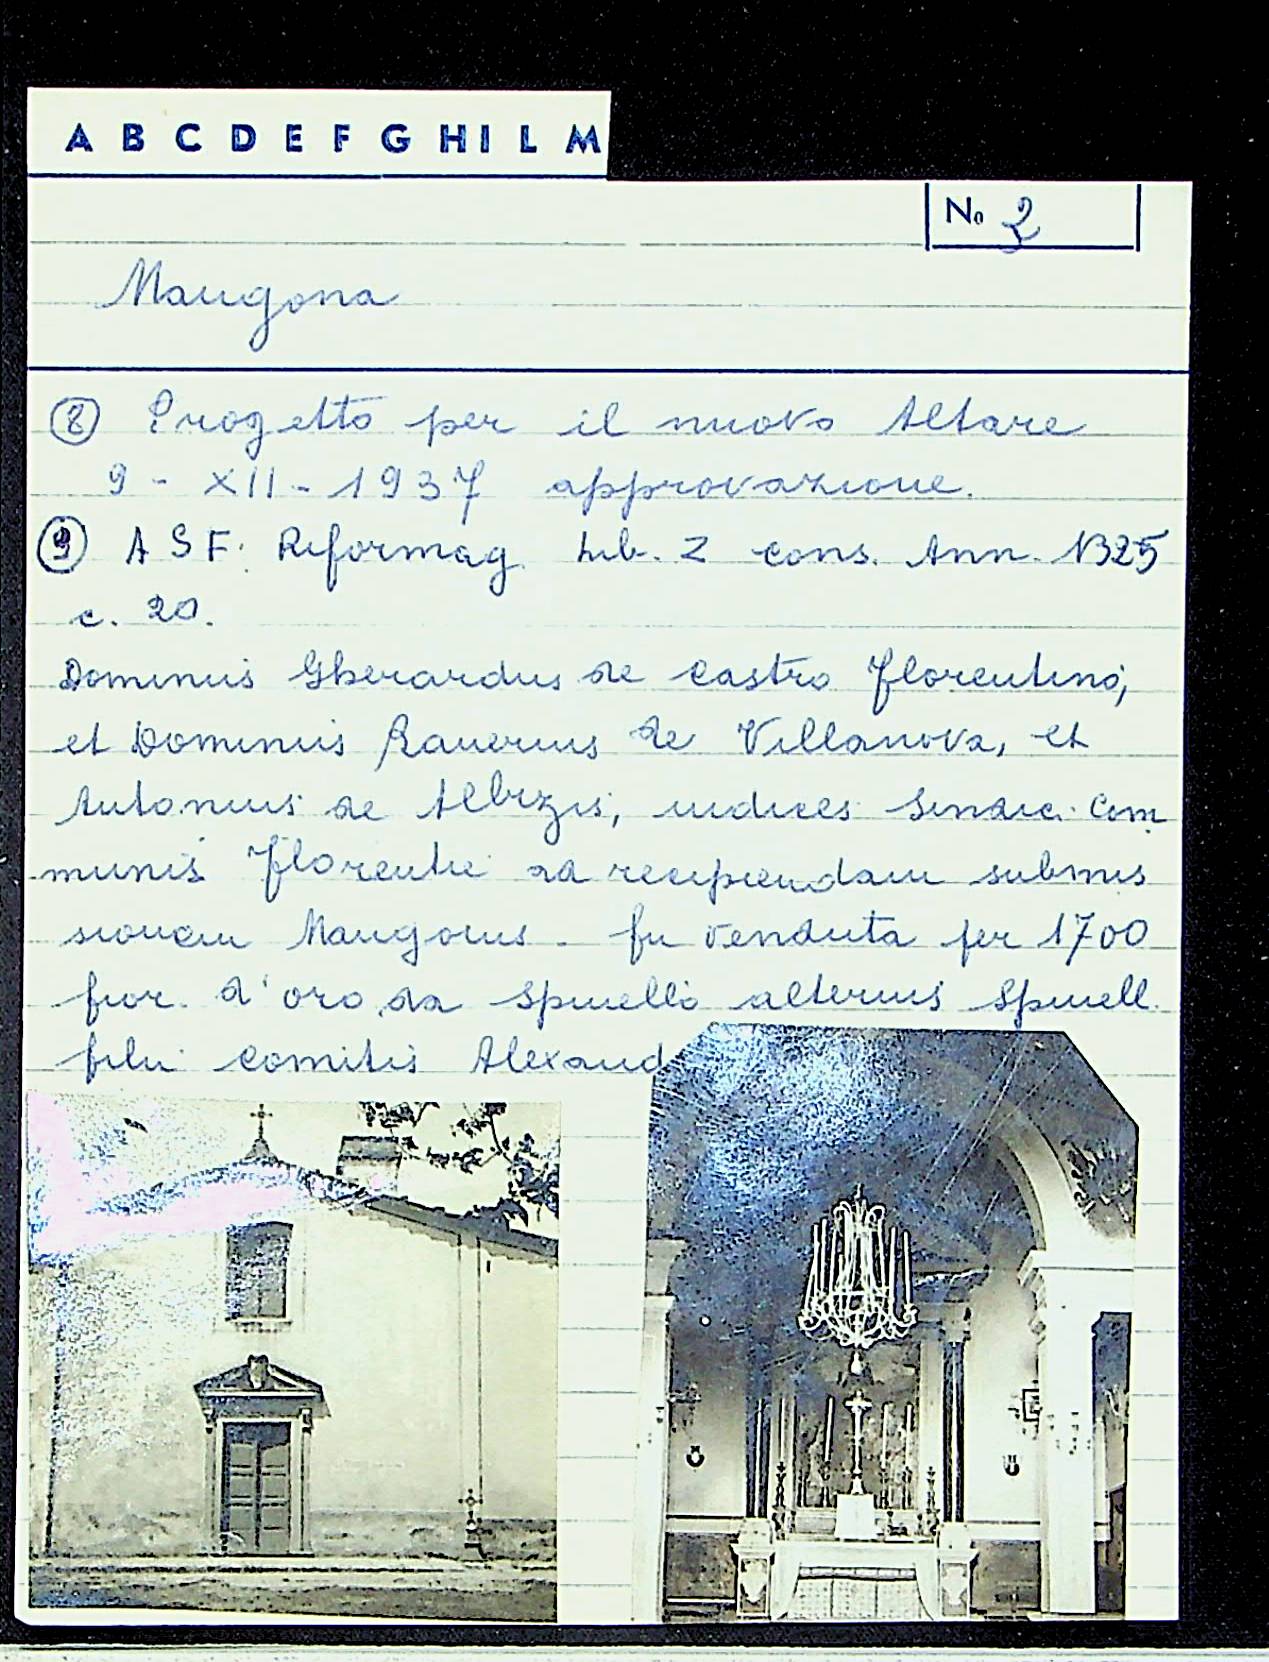 A B C D E F G H I L M
No 2
Mangona
⑧ Progetto per il nuovo Altare
9 - XII - 1937 approvazione.
⑨ A S F. Riformag. Lib. Z cons. Ann. 1325
c. 20.
Dominus Gherardus de Castro Florentino,
et Dominus Ranerius de Villanova, et
Antonius de Albizis, iudices Sindic. Com
munis Florentie ad recipiendam submis
sionem Mangonis - fu venduta per 1700
fior. d'oro da Spinello alterius Spinell.
filii comitis Alexand